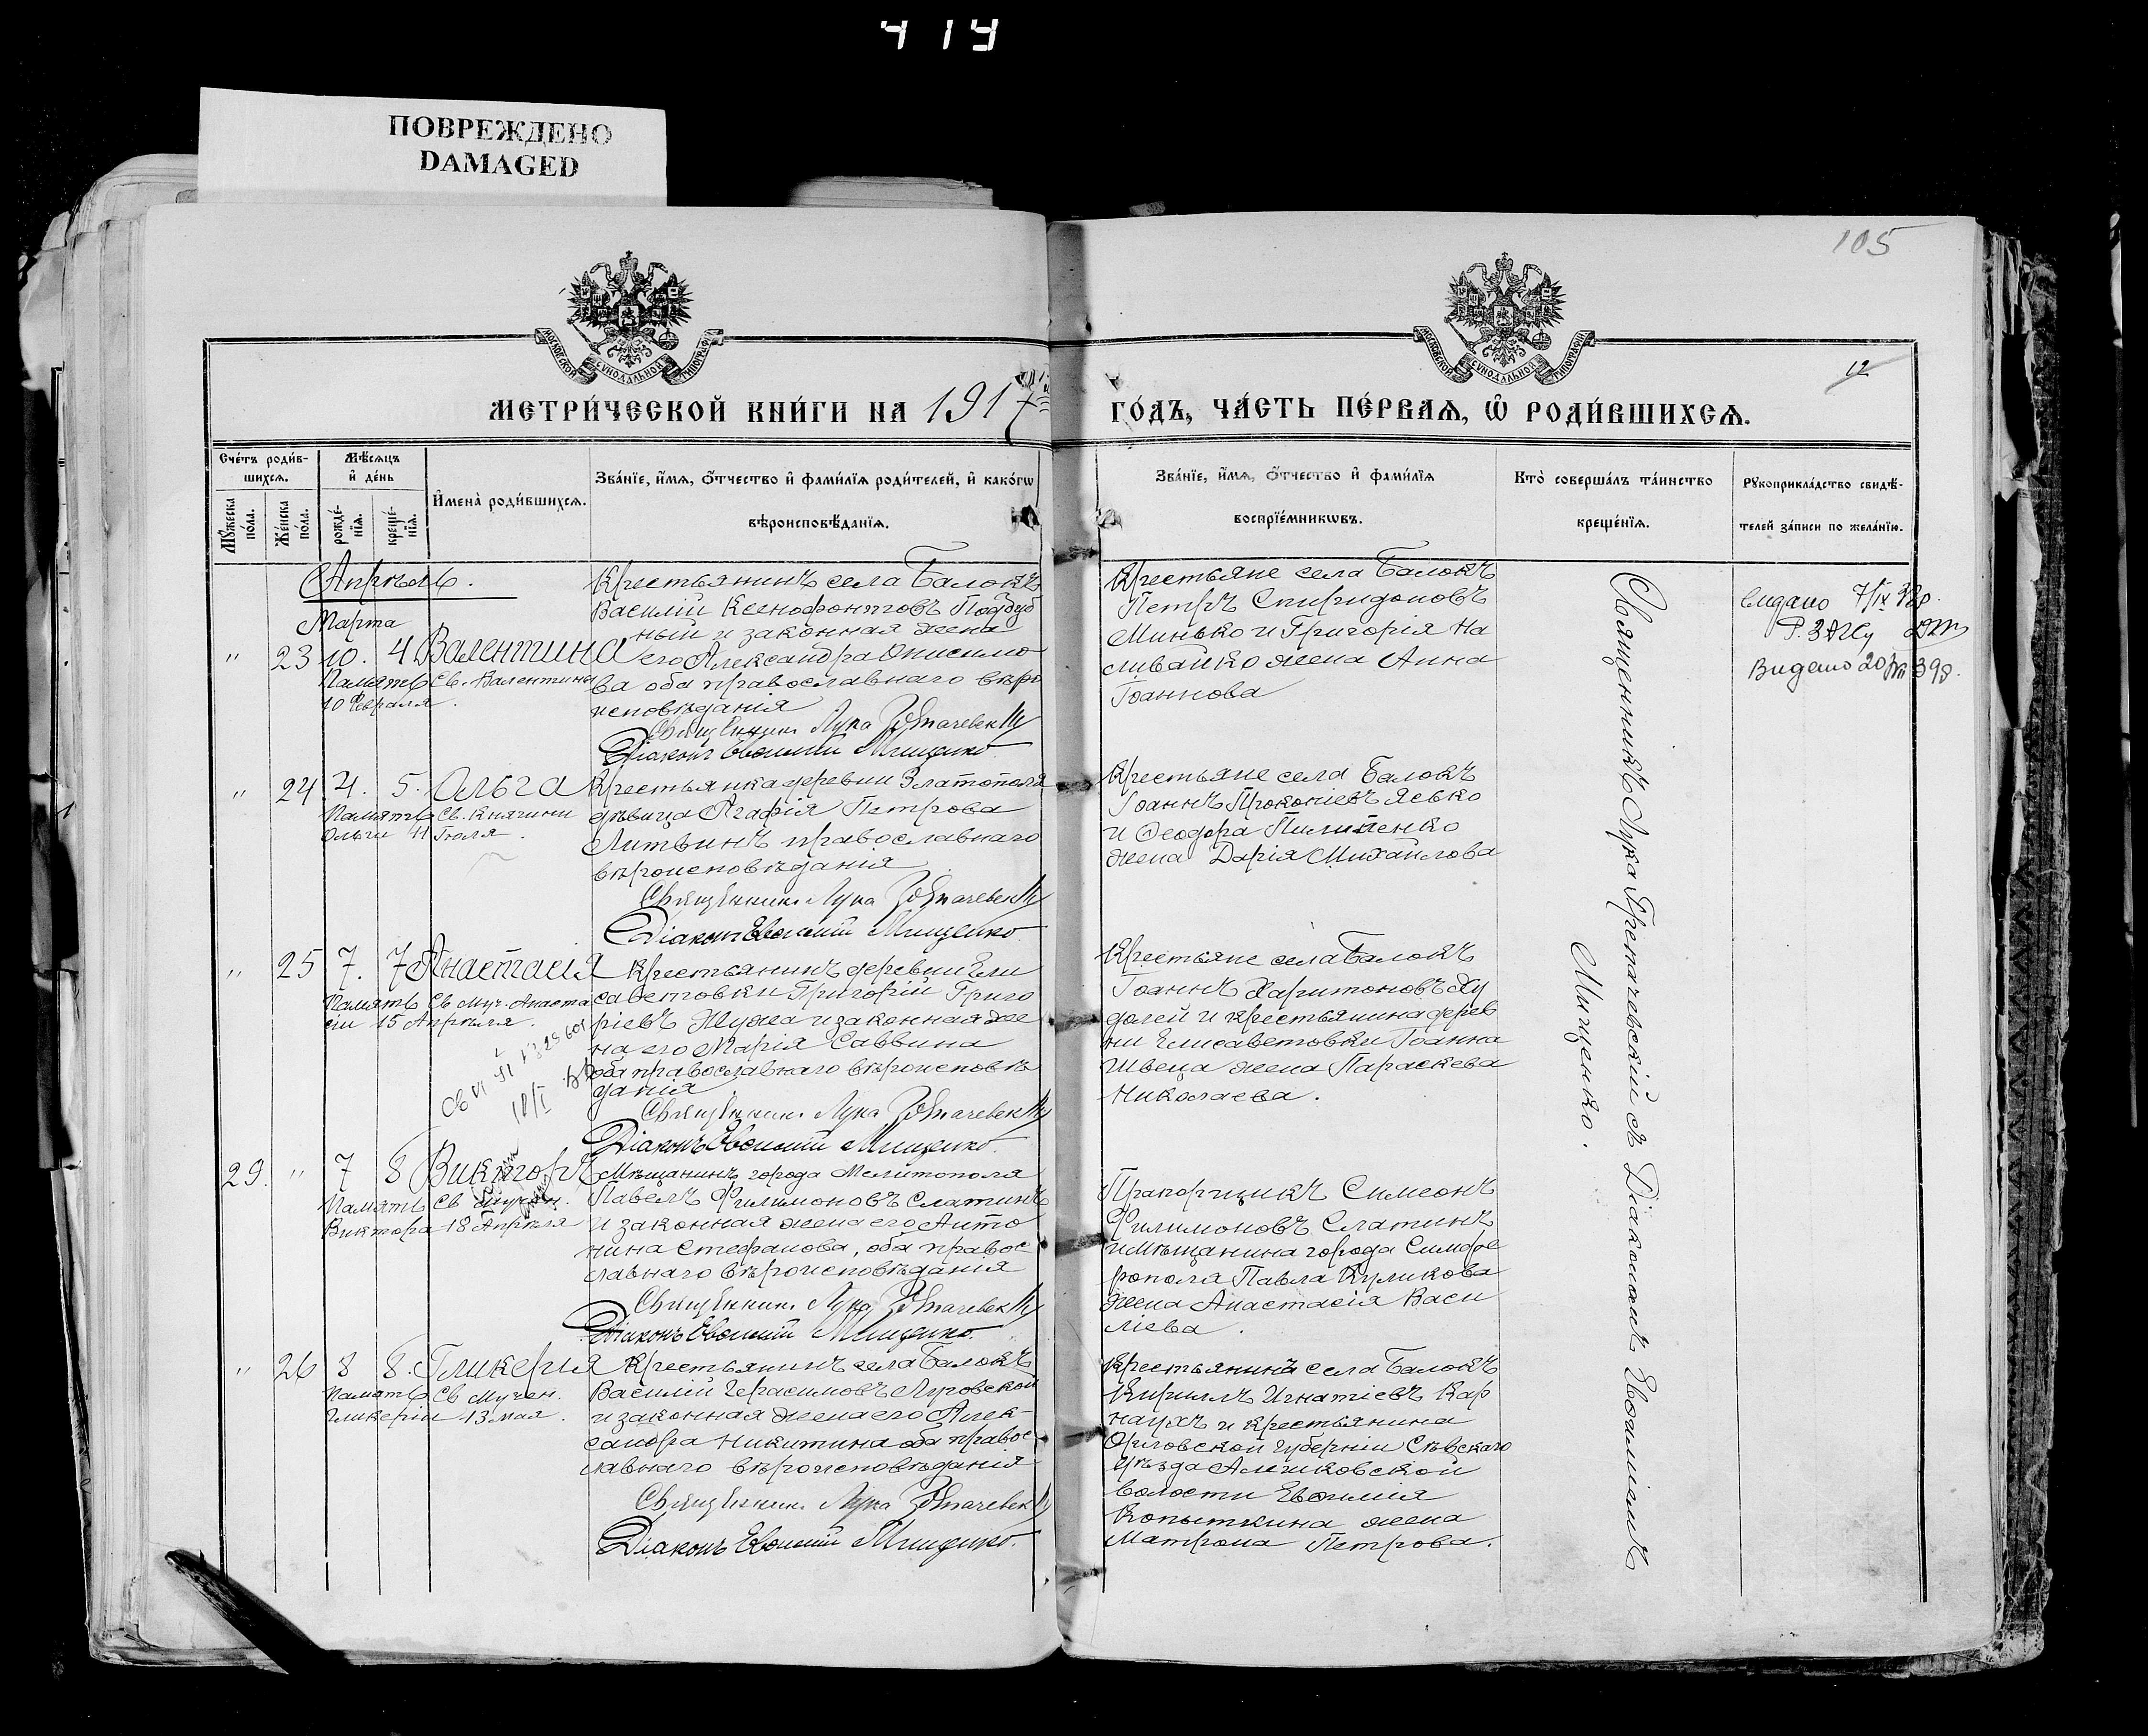 419
ПОВРЕЖДЕНО
DAMAGED
105
МОСКОВСКОЙ СѴНОДАЛЬНОЙ ТИПОГРАФІИ
МОСКОВСКОЙ СѴНОДАЛЬНОЙ ТИПОГРАФІИ
12
МЕТРИ́ЧЕСКОЙ КНИ́ГИ НА 1917
ГО́ДЪ, ЧА́СТЬ ПЕ́РВАѦ, Ѽ РОДИ́ВШИХСѦ.
Сче́тъ роди́в-
шихсѧ.
Мꙋ́жеска по́ла.
Же́нска по́ла.
Мѣ́сѧцъ
и҆ де́нь
рожде́-
нїѧ.
креще́-
нїѧ.
И҆мена̀ роди́вшихсѧ.
Зва́нїе, и҆́мѧ, ѻ҆́тчество и҆ фами́лїѧ роди́телей, и҆ како́гѡ
вѣроисповѣ́данїѧ.
Зва́нїе, и҆́мѧ, ѻ҆́тчество и҆ фами́лїѧ
воспрїе́мникѡвъ.
Кто̀ соверша́лъ та́инство
креще́нїѧ.
Рꙋкоприкла́дство свидѣ́-
телей за́писи по жела́нїю.
Апрѣль.
Марта
" 23 10. 4 Валентина
Память Св. Валентины
10 Февраля.
Крестьянинъ села Балокъ
Василій Ксенофонтовъ Поддуб
ный и законная жена
его Александра Онисимо
ва оба православнаго вѣро
исповѣданія
Священникъ Лука
Діаконъ Евѳимій Мищенко
Крестьяне села Балокъ
Петръ Спиридоновъ
Минько и Григорія На
ливайко жена Анна
Іоаннова
Священникъ Лука Гпепачевскій съ Діакономъ Евѳиміемъ
Мищенко.
Видано 7/IV 38р.
Р. ЗАГСу
Видано 20/VII 39р.
" 24 4. 5. Ольга
Память Св. Княгини
Ольги 11 Іюля.
Крестьянка деревни Златополя
дѣвица Агафія Петрова
Литвинъ православнаго
вѣроисповѣданія
Священникъ Лука
Діаконъ Евѳимій Мищенко
Крестьяне села Балокъ
Іоаннъ Прокопіевъ Ясько
и Ѳеодора Пилипенко
жена Дарія Михайлова
" 25 7. 7 Анастасія
Память Св. Муч. Анаста
сіи 15 Апрѣля.
Крестьянинъ деревни Ели
саветовки Григорій Григо
ріевъ Жужа и законная же
на его Марія Саввина
оба православнаго вѣроисповѣ
данія
Священникъ Лука
Діаконъ Евѳимій Мищенко.
Крестьяне села Балокъ
Іоаннъ Харитоновъ Ху
долей и крестьянина дерев
ни Елисаветовки Іоанна
Швеца жена Параскева
Николаева.
29. " 7 8 Викторъ
Память Св. Мучен.
Виктора 18 Апрѣля
Мѣщанинъ города Мелитополя
Павелъ Филимоновъ Слатинъ
и законная жена его Анто
нина Стефанова, оба правос
лавнаго вѣроисповѣданія
Священникъ Лука
Діаконъ Евѳимій Мищенко.
Прапорщикъ Симеонъ
Филимоновъ Слатинъ
и мѣщанина города Симфе
рополя Павла Куликова
жена Анастасія Васи
ліева.
" 26 8 8. Гликерія
Память Св. Мучен.
Гликеріи 13 мая.
Крестьянинъ села Балокъ
Василій Герасимовъ Луговской
и законная жена его Алек-
сандра Никитина оба правос
лавнаго вѣроисповѣданія
Священникъ Лука
Діаконъ Евѳимій Мищенко.
Крестьянинъ села Балокъ
Кириллъ Игнатіевъ Кар
наухъ и крестьянина
Орловской губерніи Сѣвскаго
уѣзда
волости Евѳимія
Копыткина жена
Матрона Петрова.